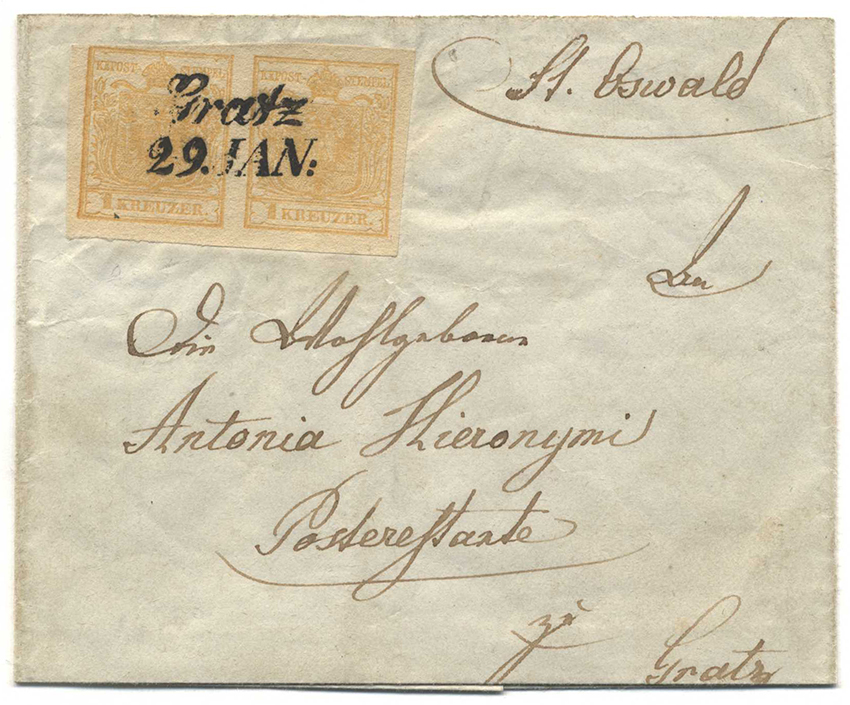 K.K.POST-STEMPEL K.K.POST-STEMPEL
Gratz
29. JAN:
1 KREUZER. 1 KREUZER.
St. Oswald
An
Die Wohlgeborne
Antonia Hieronymi
Posterestante
zu
Gratz